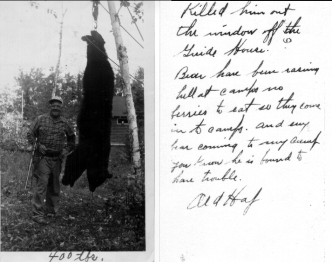 400 lbs.
Killed him out
the window off the
Guide House.
Bear have been raising
hell at camps no
berries to eat so they come
in to camps. and any
bear coming to my camp
you know he is bound to
have trouble.